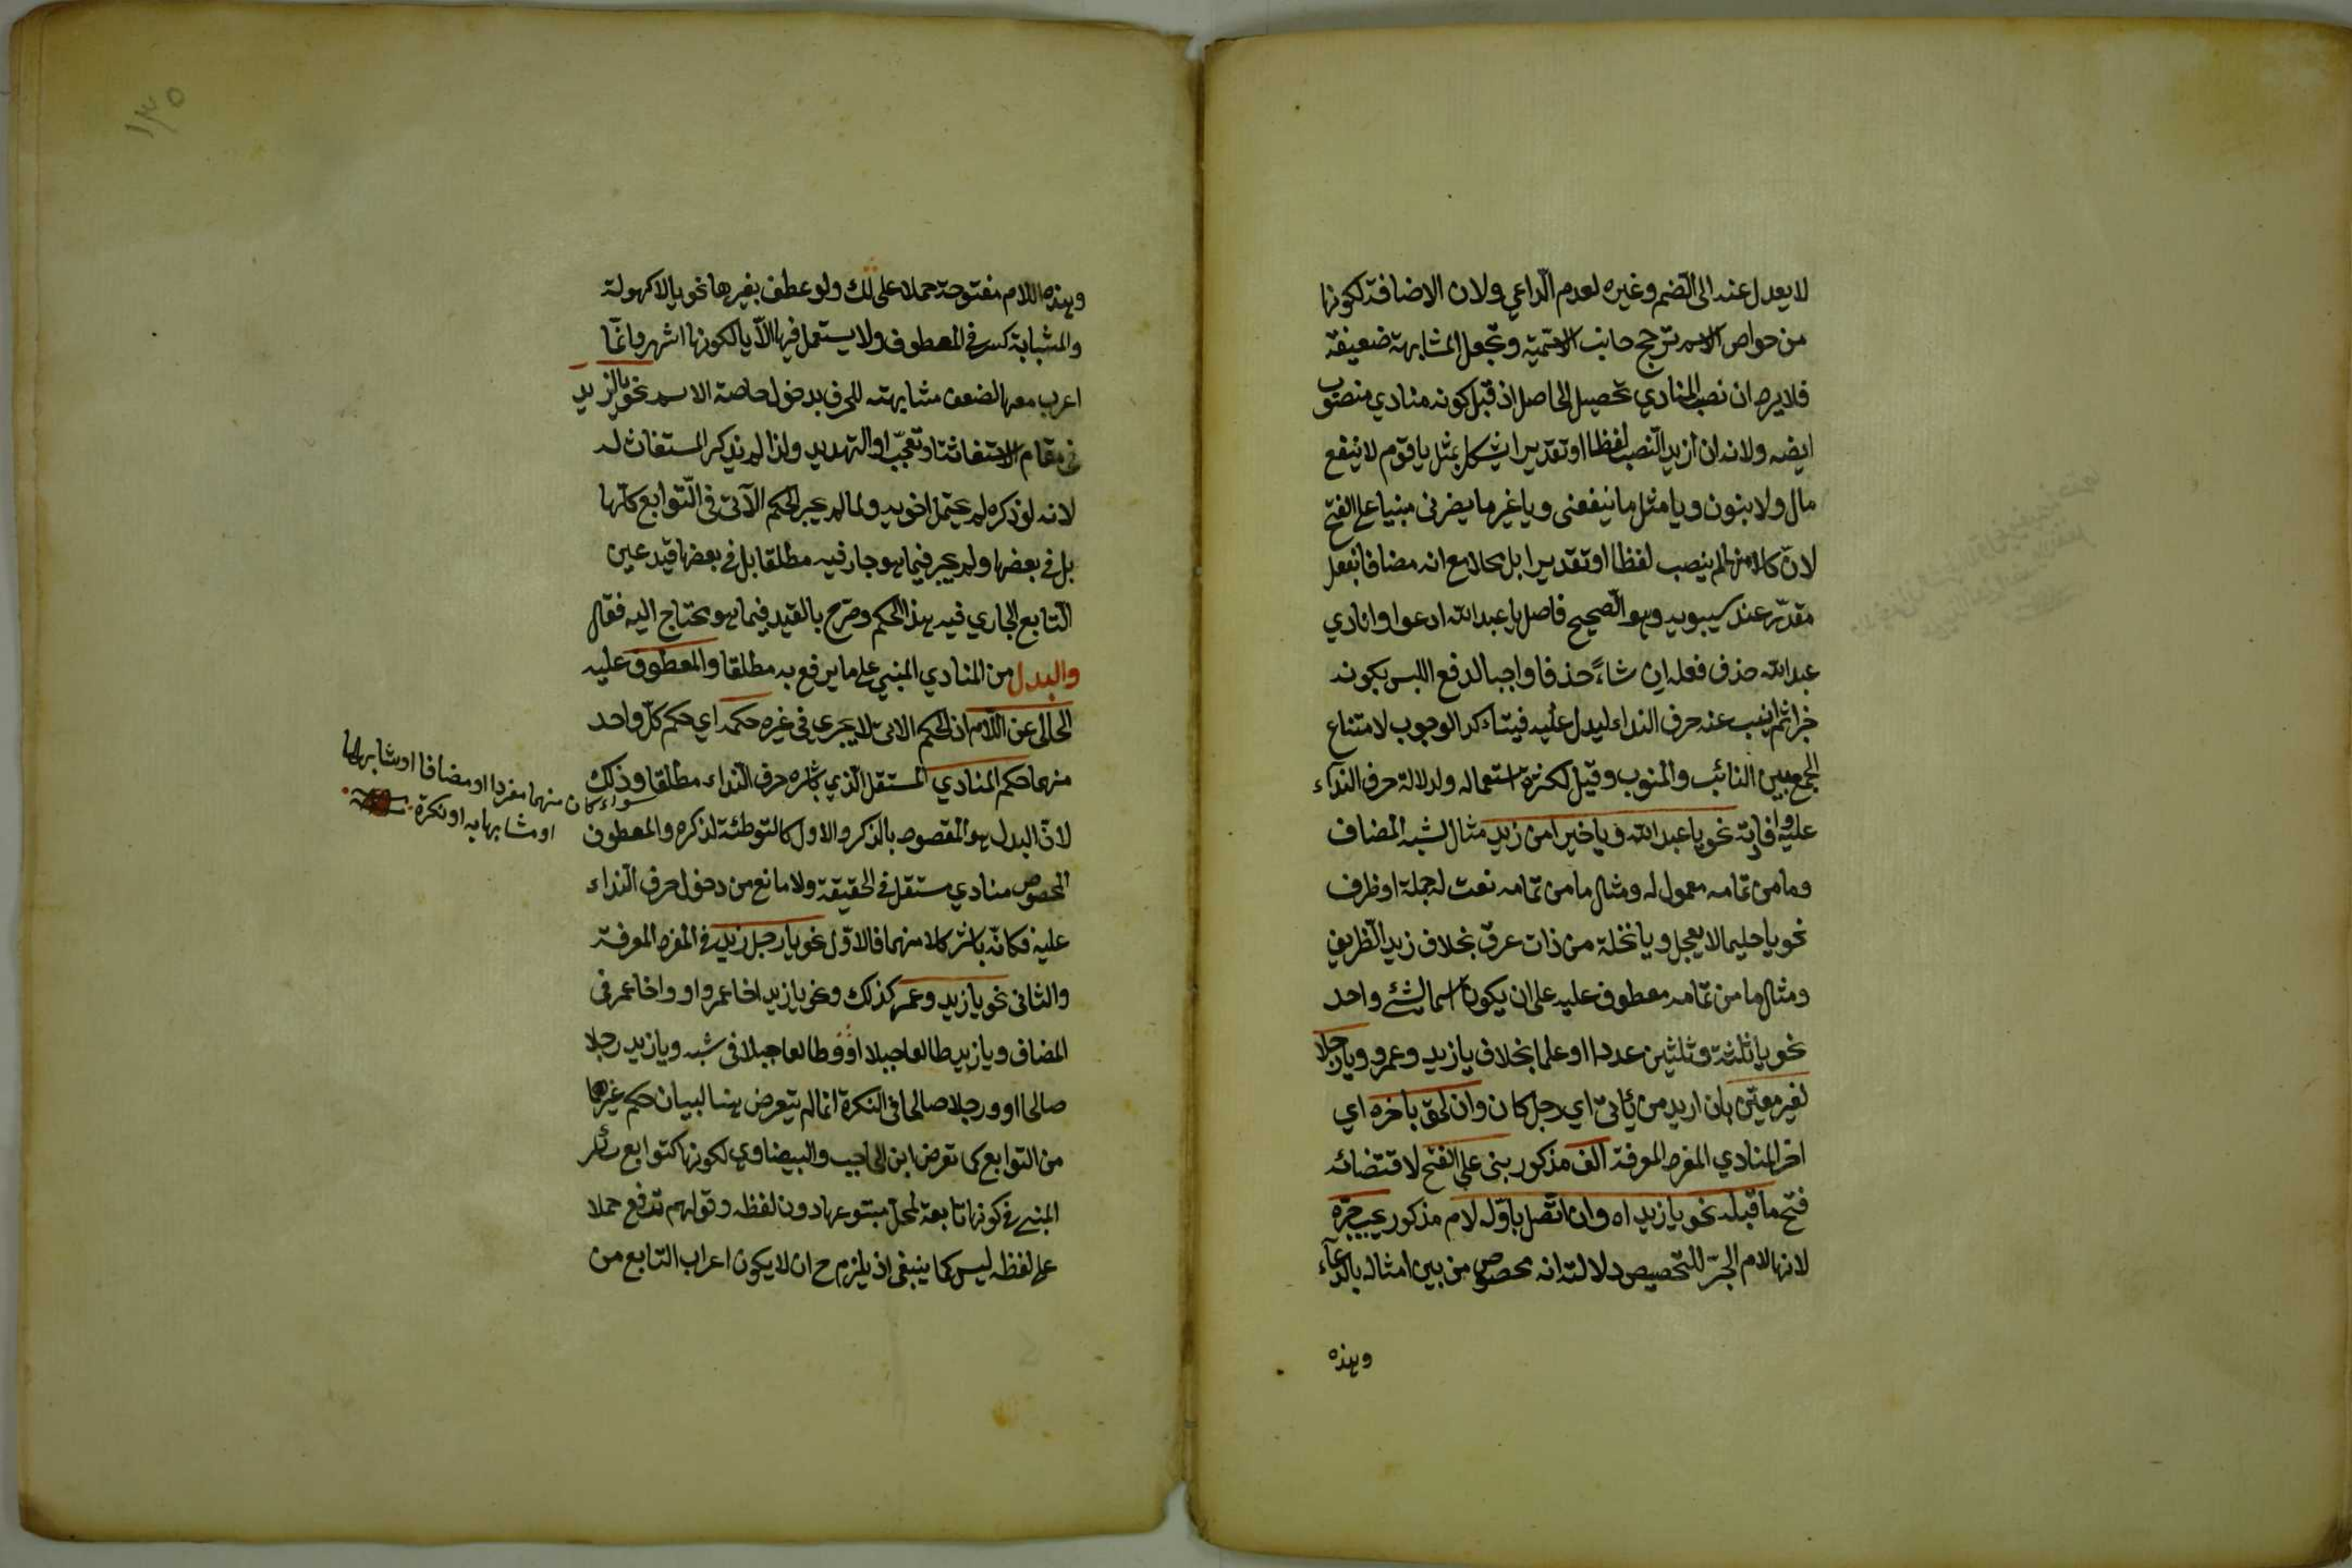 لا يعدل عنه الى الضم وغيره لعدم الداعي ولان الاضافة لكونها
من خواص الاسم ترجح جانب الاسمية وتجعل المشابهة ضعيفة
فلا يرد ان نصب المنادي تحصيل الحاصل اذ قبل كونه منادي منصوب
ايضه ولانه ان اريد النصب لفظا او تقديرا يشكل بمثل يا قوم لا ينفع
مال ولا بنون ويا مثل ما ينفعنى ويا غير ما يضرنى مبنيا على الفتح
لان كلا منها لم ينصب لفظا او تقديرا بل محلا مع انه مضاف بفعل
مقدر عند سيبويه وهو الصحيح فاصل يا عبد الله ادعوا وانادي
عبد الله حذف فعله ان شاء حذفا واجبا لدفع اللبس بكونه
خبرا ثم انيب عنه حرف النداء ليدل عليه فيتاكد الوجوب لامتناع
الجمع بين النائب والمنوب وقيل لكثرة استعماله ولدلالة حرف النداء
عليه وافادته نحو يا عبد الله ويا خيرا من زيد مثال لشبه المضاف
وما من تمامه معمول له ومثال ما من تمامه نعت له جملة او ظرف
نحو يا حليما لا يعجل ويا نخلة من ذات عرق بخلاف زيد الظريف
ومثال ما من تمامه معطوف عليه على ان يكون اسما لشئ واحد
نحو يا ثلثة وثلثين عددا او علما بخلاف يا زيد وعمرو ويا رجلا
لغير معين بان اريد من يأتى اي رجل كان وان لحق باخره اي
اخر المنادي المفرد المعرفة الف مذكور بنى على الفتح لاقتضائه
فتح ما قبله نحو يا زيداه وان اتصل باوله لام مذكور يجب جره
لانها لام الجر للتخصيص دلالة انه مخصوص من بين امثاله بالدعاء
وهذه
١٣٥
وهذه اللام مفتوحة حملا على لك ولو عطف بغيرها نحو يا لا كهولة
والمشبابة كسر في المعطوف ولا يستعمل فيها الا يا لكونها اشهر وانما
اعرب معها لضعف مشابهته للحرف بدخول خاصة الاسم نحو يا لزيد
في مقام الاستغاثة او تعجب او التهديد ولذا لم يذكر المستغاث له
لانه لو ذكره لم يحتمل اخويه ولما لم يجر الحكم الآتى فى التوابع كلها
بل في بعضها ولم يجر فيما هو جار فيه مطلقا بل في بعضها قيد عين
التابع الجاري فيه هذا الحكم وصرح بالقيد فيما هو محتاج اليه فقال
والبدل من المنادي المبني على ما يرفع به مطلقا والمعطوف عليه
الخالى عن اللام اذ الحكم الاتى لا يجري فى غيره حكمه اي حكم كل واحد
منهما حكم المنادي المستقل الذي باشره حرف النداء مطلقا وذلك
سواء كان منهما مفردا او مضافا او مشابها لها
او مشابها به او نكرة
لان البدل هو المقصود بالذكر والاول كالتوطئة لذكره والمعطوف
المخصوص منادي مستقل في الحقيقة ولا مانع من دخول حرف النداء
عليه فكانه باشر كلا منهما فالاول نحو يا رجل زيد في المفرد المعرفة
والثانى نحو يا زيد وعمر كذلك ونحو يا زيد اخا عمرو او واخا عمر فى
المضاف ويا زيد طالعا جبلا او وطالعا جبلا فى شبهه ويا زيد رجلا
صالحا او ورجلا صالحا فى النكرة انما لم يتعرض هنا لبيان حكم غيرها
من التوابع كما تعرض ابن الحاجب والبيضاوي لكونها كتوابع سائر
المبني في كونها تابعة لمحل متبوعها دون لفظه وقولهم ترفع حملا
على لفظه ليس كما ينبغى اذ يلزم ح ان لا يكون اعراب التابع من